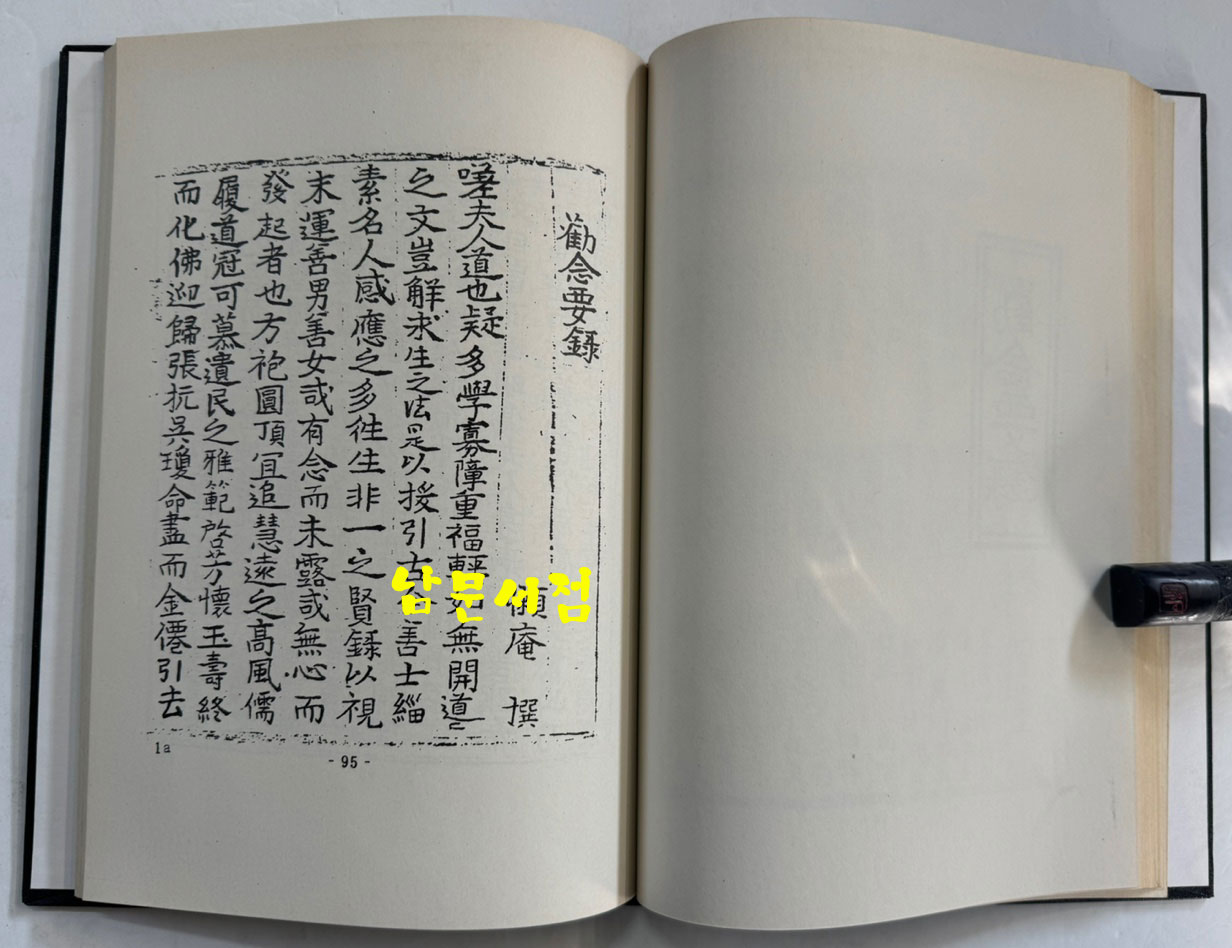 勸念要錄
庵 撰
嗟夫人道也疑多學寡障重福輕如無開導
之文豈解求生之法是以援引古今善士緇
素名人感應之多徃生非一之賢錄以視
末運善男善女或有念而未露或無心而
發起者也方袍圓頂冝追慧遠之高風儒
履道冠可慕遺民之雅範啓芳懷玉壽終
而化佛迎歸張抗吳瓊命盡而金僊引去
1a
- 95 -
남문서점